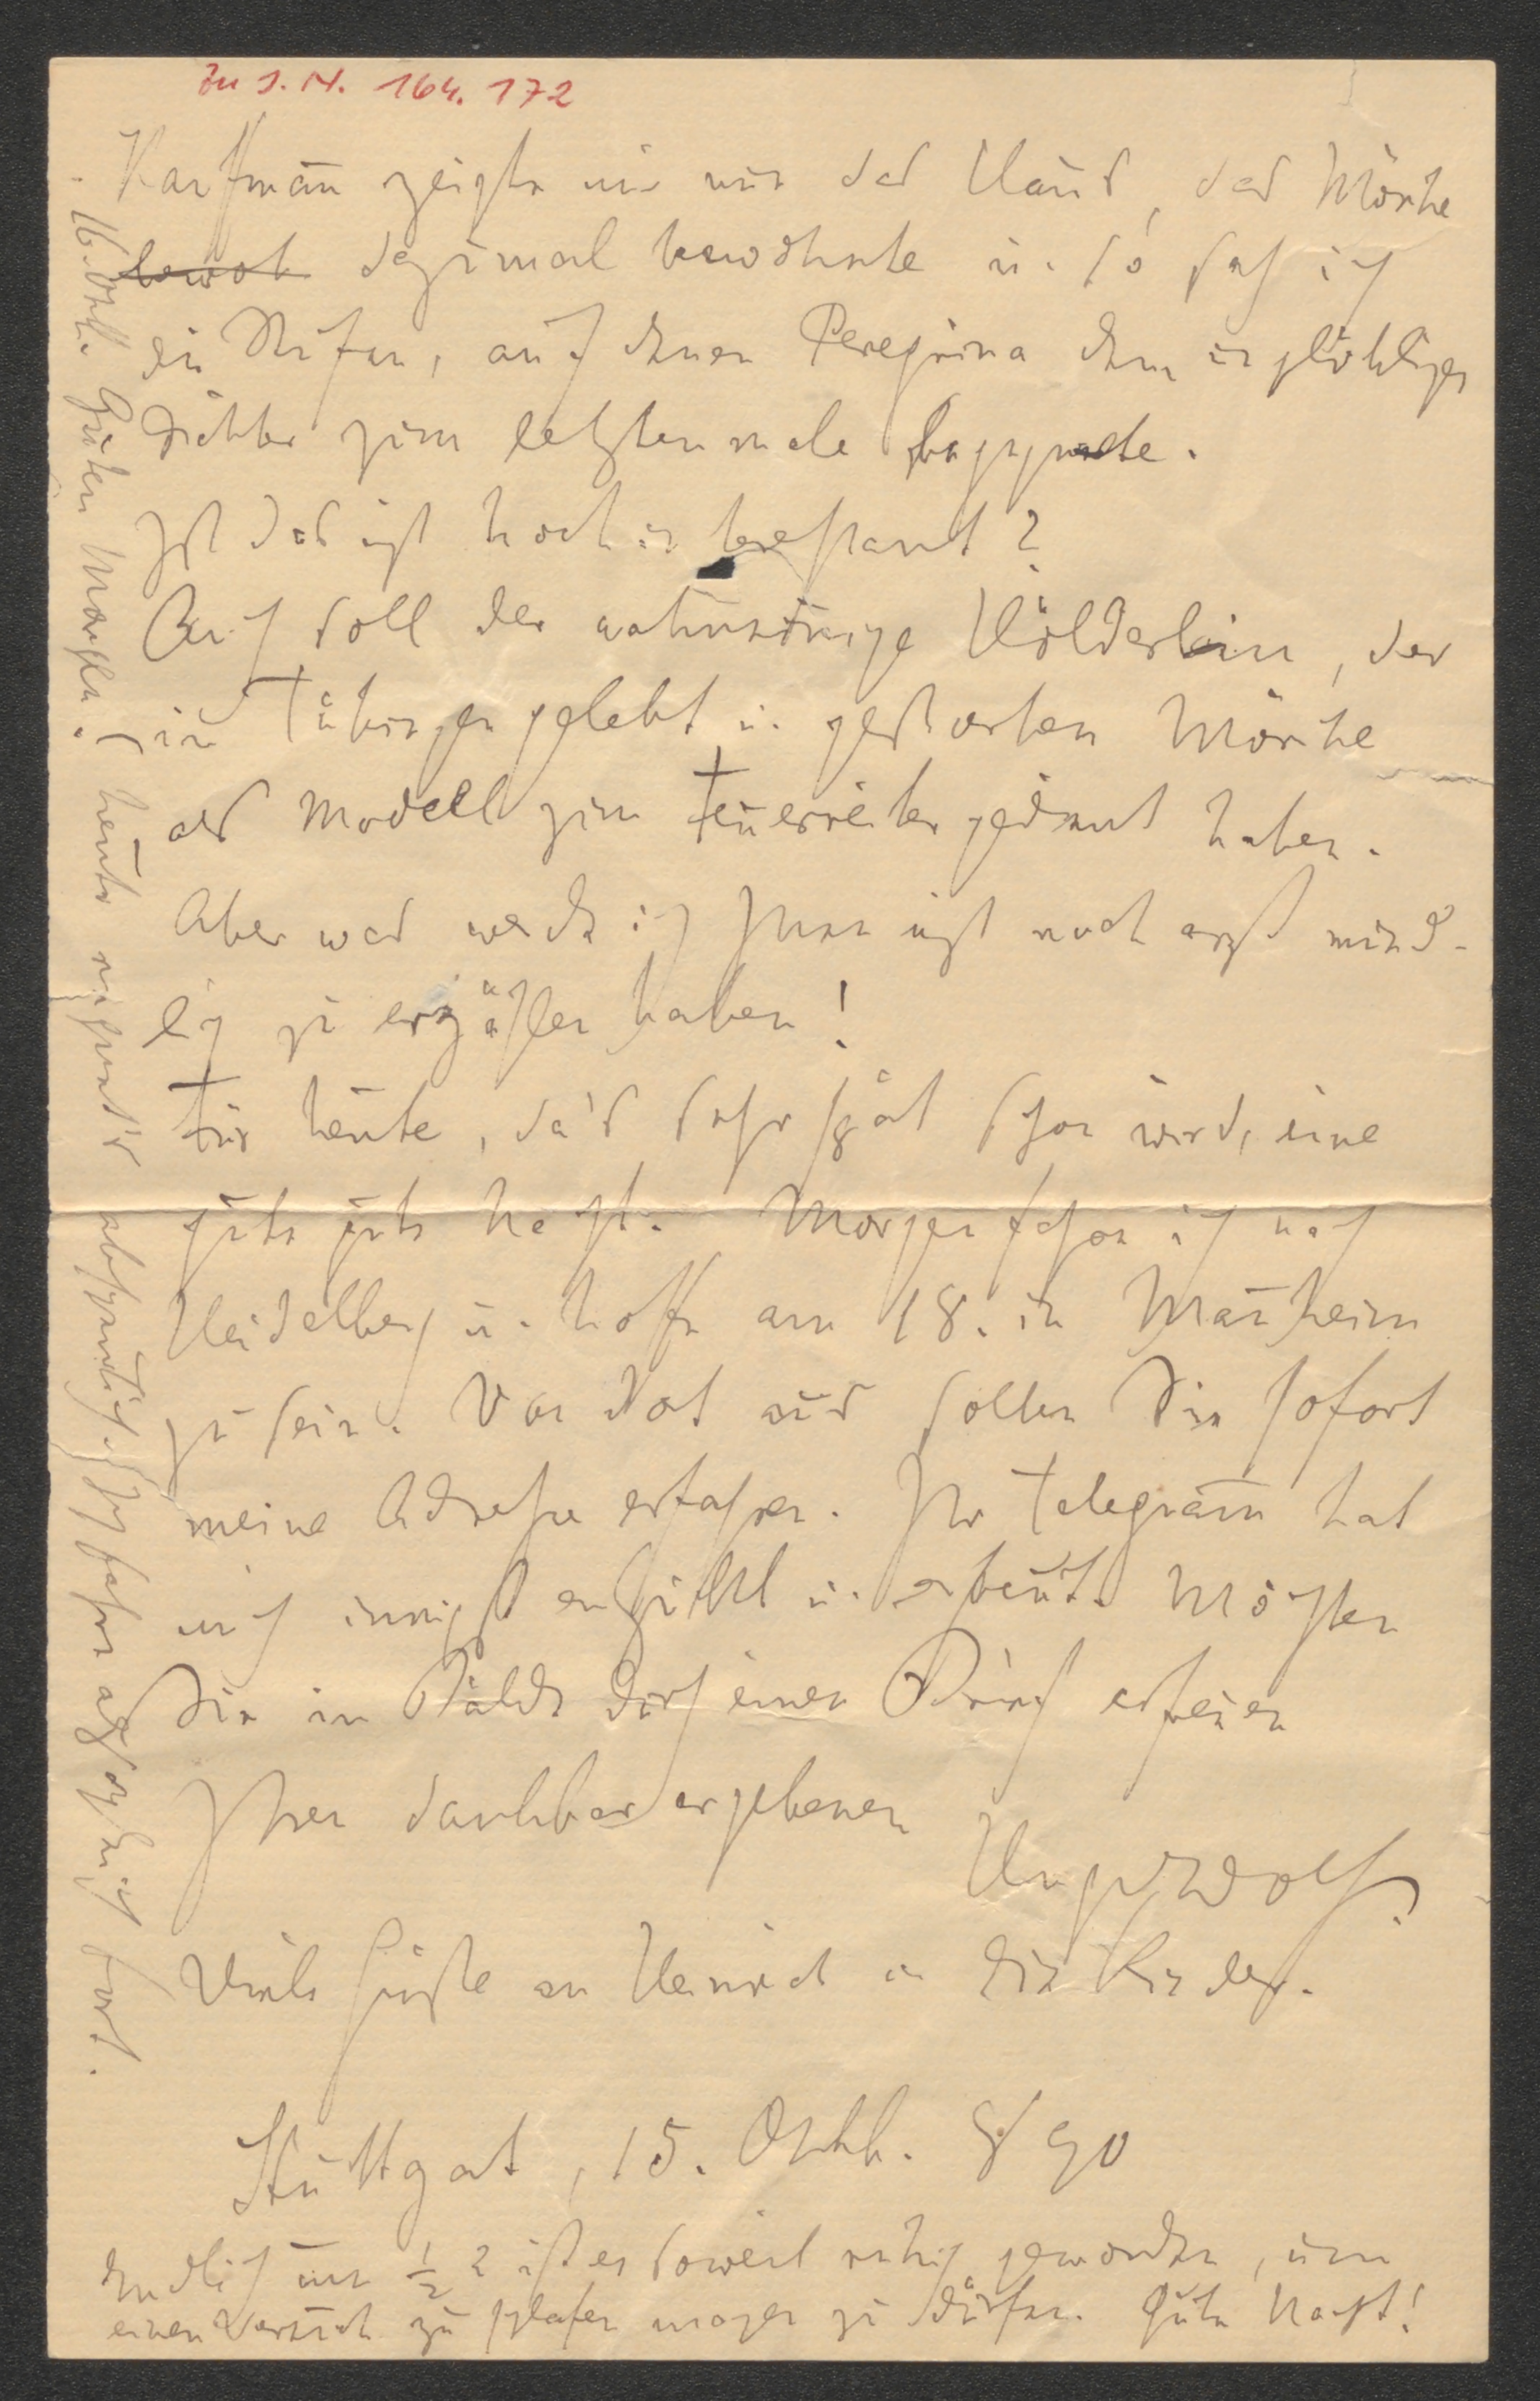 Zu I.N. 164.172
Kaufmañ zeigte mir nur das Haus, das Mörike
bewoh dazumal bewohnte u. so sah ich
die Stufen, auf denen Peregrina dem unglücklichen
Dichter zum letztenmale begegnete.
Ist das nicht hochinteressant?
Auch soll der wahnsinnige Hölderlin, der
in Tübingen gelebt u. gestorben Mörike
als Modell zum Feuerreiter gedient haben.
Aber was werde ich Ihnen nicht noch erst münd-
lich zu erzählen haben!
Für heute, da's sehr spät schon wird, eine
gute gute Nacht. Morgen fahre ich nach
Heidelberg u. hoffe am 18. in Mañheim
zu sein. Von dort aus sollen Sie sofort
meine Adresse erfahren. Ihr Telegram̄ hat
mich innigst entzückt u. erfreut. Möchten
Sie in Bälde durch einen Brief erfreuen
Ihren dankbar ergebenen
Hugo Wolf.
Viele Grüße an Heinrich u. die Kinder.
Stuttgart, 15. Octb. 890
Endlich um ½ 2 ist es soweit ruhig geworden, um
einen Versuch zu schlafen wagen zu dürfen. Gute Nacht!
16. Octb. Guten Morgen! heute abscheulich. Ich fahre fort.